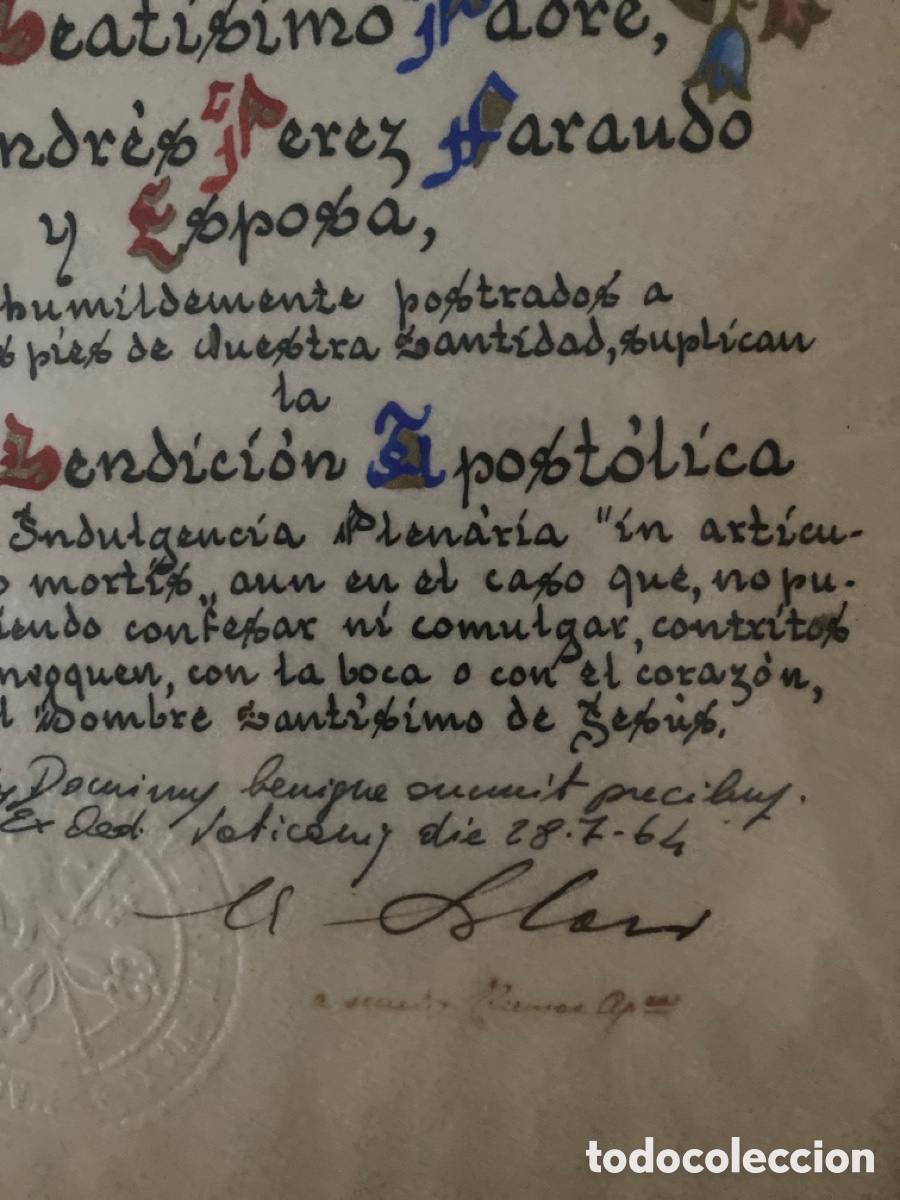 Beatísimo Padre,
ndrés Perez Faraudo
y Esposa,
humildemente postrados a
s pies de Vuestra Santidad, suplican
la
Bendición Apostólica
Indulgencia Plenária "in artícu-
o mortis„ aun en el caso que, no pu-
iendo confesar ni comulgar, contritos
nvoquen, con la boca o con el corazón,
l Nombre Santísimo de Jesús.
Dominus benigne annuit precibus.
Ex Aed. Vaticanis die 28-7-64
todocoleccion